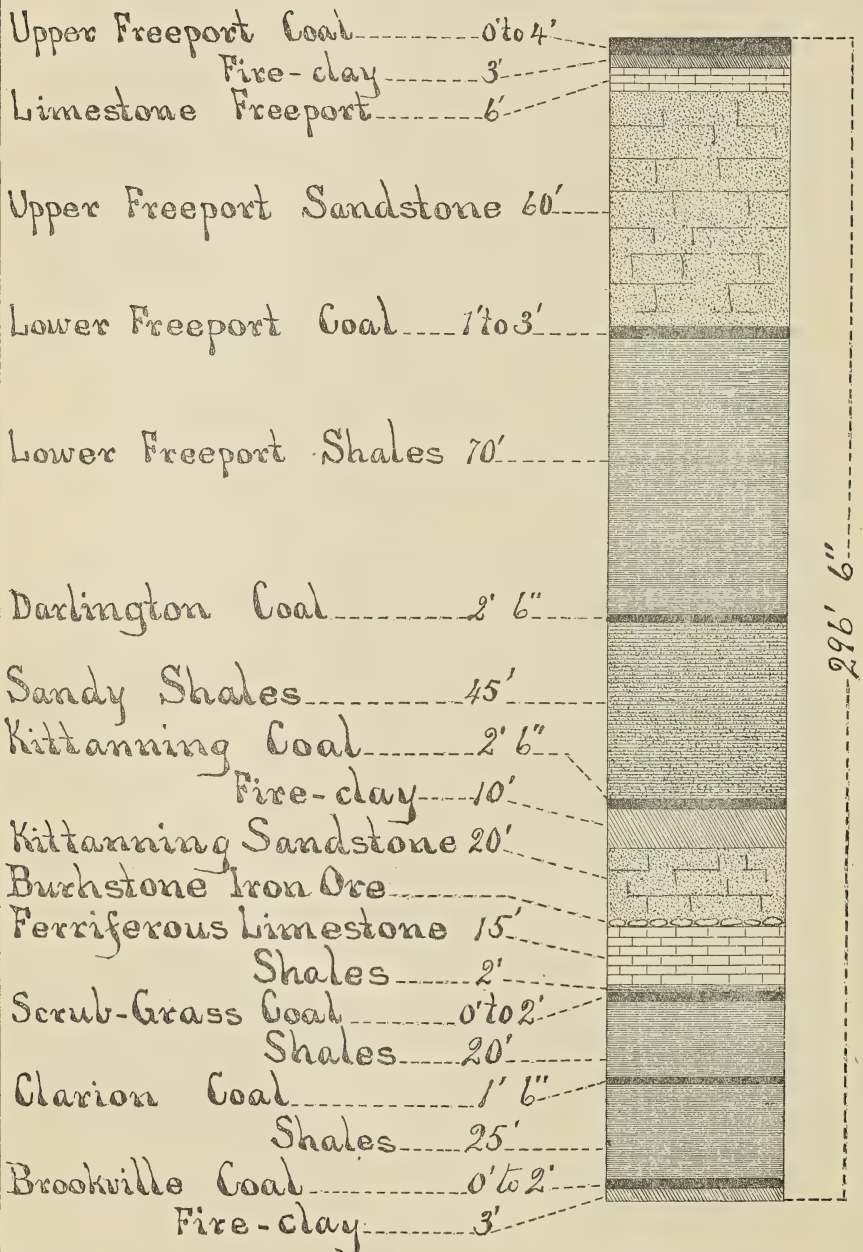 Upper Freeport Coal 0' to 4'
Fire-clay 3'
Limestone Freeport 6'
Upper Freeport Sandstone 60'
Lower Freeport Coal 1' to 3'
Lower Freeport Shales 70'
Darlington Coal 2' 6"
Sandy Shales 45'
Kittanning Coal 2' 6"
Fire-clay 10'
Kittanning Sandstone 20'
Burhstone Iron Ore
Ferriferous Limestone 15'
Shales 2'
Scrub-Grass Coal 0' to 2'
Shales 20'
Clarion Coal 1' 6"
Shales 25'
Brookville Coal 0' to 2'
Fire-clay 3'
296' 6"